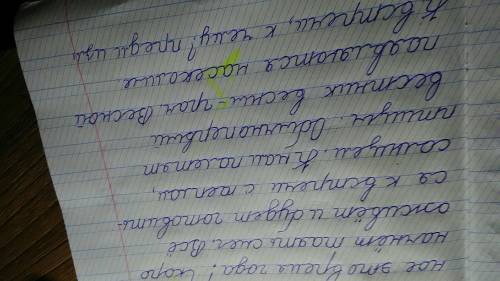 ное это время года! Скоро
начнёт таять снег. Всё
оживёт и будет готовить-
ся к встречи с теплом,
солнцем. К нам полетят
птицы. Обычно первый
вестник весны - грач. Весной
появляются насекомые.
К встречи, к чему? предл